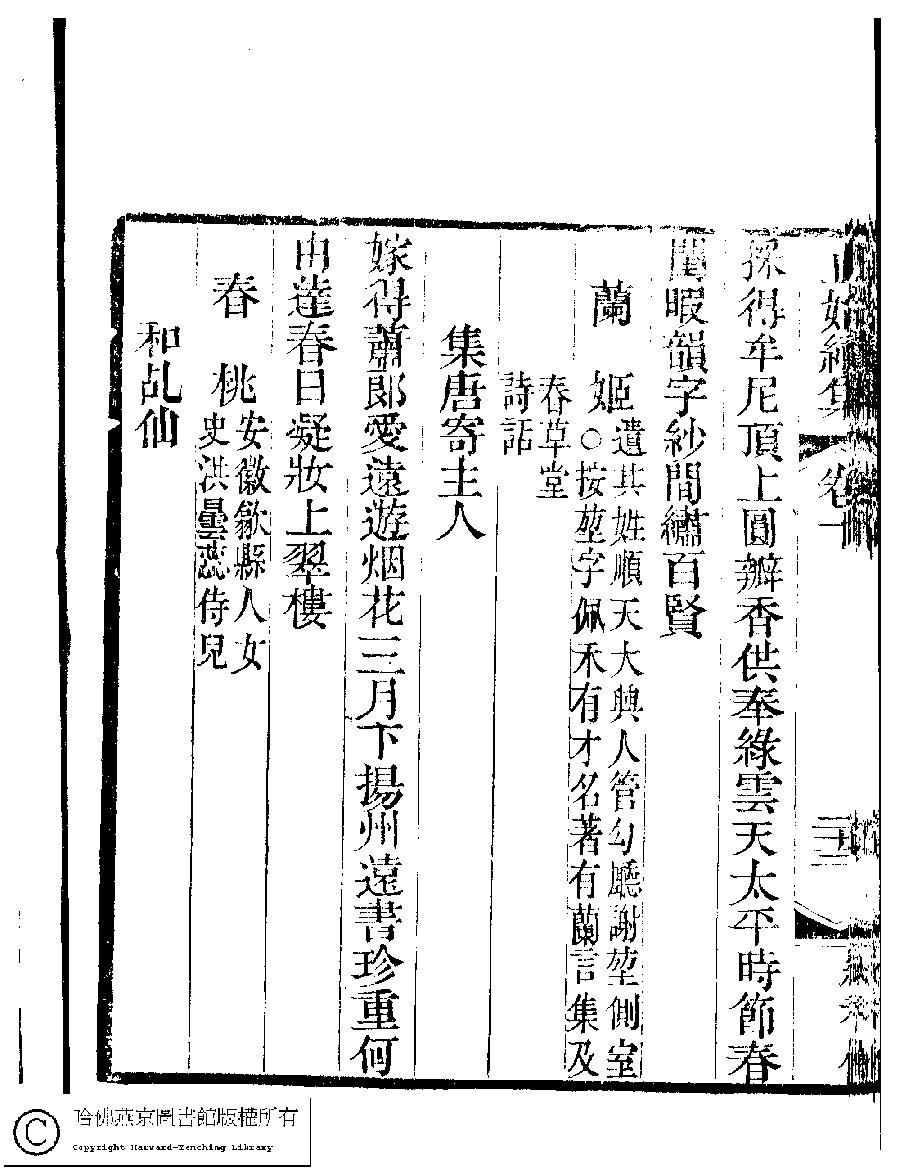 始續集 卷十
三
採得牟尼頂上圓瓣香供奉綠雲天太平時節春
閨暇韻字紗間繡百賢
蘭 姬 遺其姓順天大興人管勾廳謝堃側室
○按堃字佩禾有才名著有蘭言集及
春草堂
詩話
集唐寄主人
嫁得蕭郎愛遠遊烟花三月下揚州遠書珍重何
由達春日凝妝上翠樓
春 桃 安徽歙縣人女
史洪曇蕊侍兒
和乩仙
哈佛燕京圖書館版權所有
Copyright Harvard-Yenching Library